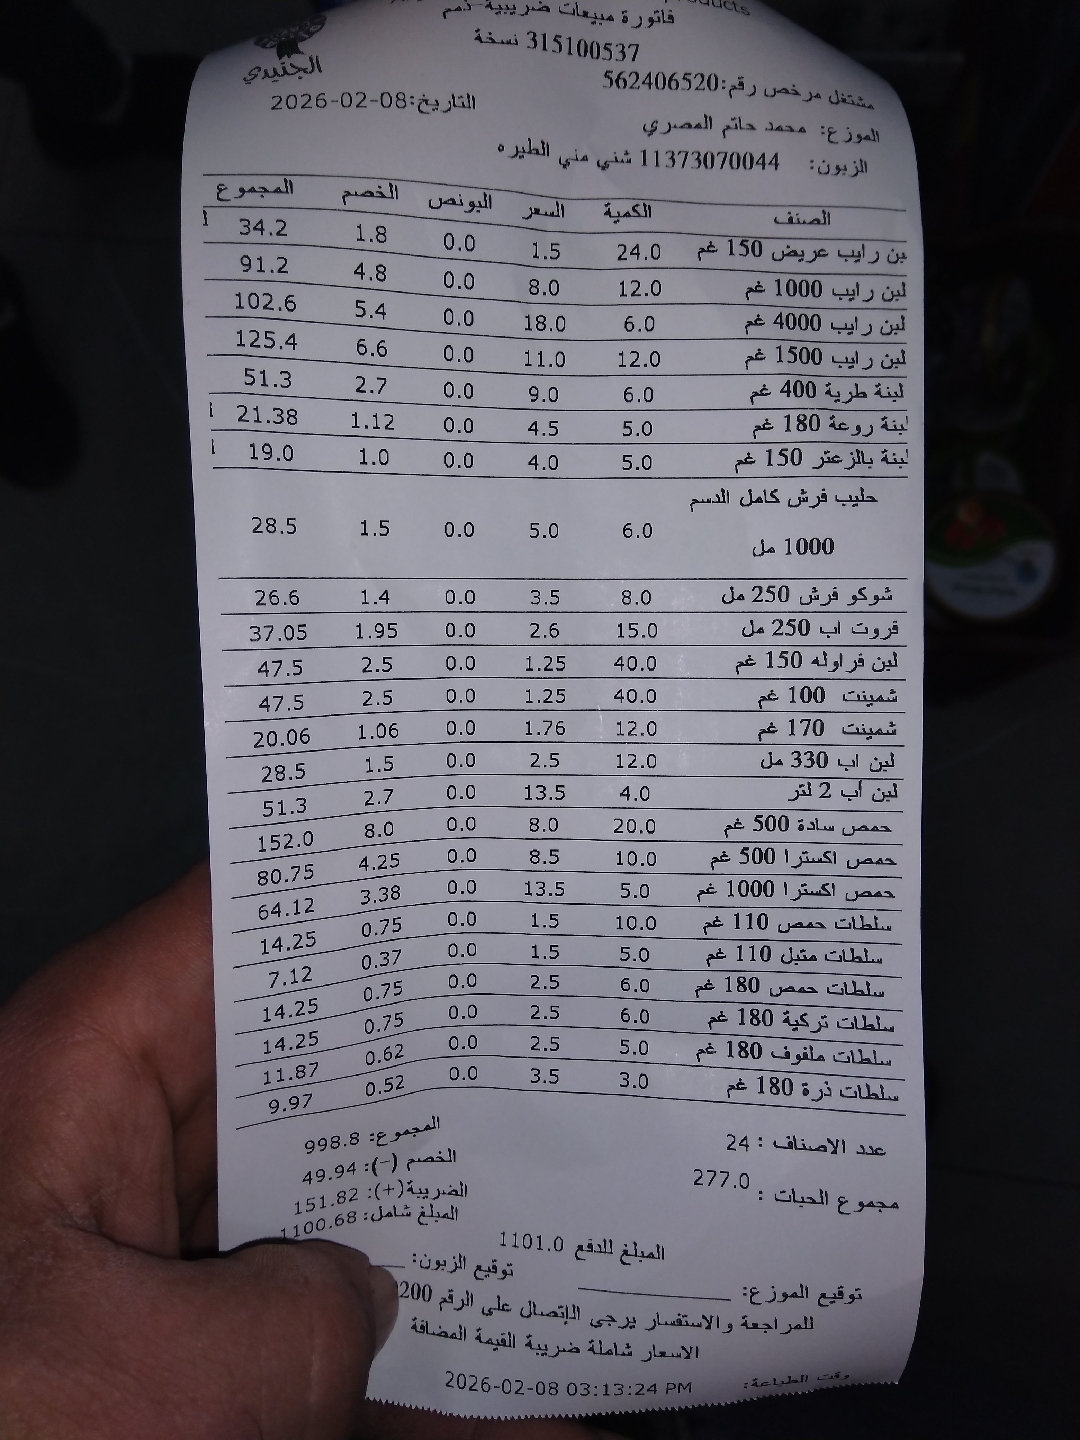 products
فاتورة مبيعات ضريبية-ذمم
315100537 نسخة
الجنيدي
مشتغل مرخص رقم:562406520
التاريخ:2026-02-08
الموزع: محمد حاتم المصري
الزبون: 11373070044 شني مني الطيره
الصنف الكمية السعر البونص الخصم المجموع
بن رايب عريض 150 غم 24.0 1.5 0.0 1.8 34.2
لبن رايب 1000 غم 12.0 8.0 0.0 4.8 91.2
لبن رايب 4000 غم 6.0 18.0 0.0 5.4 102.6
لبن رايب 1500 غم 12.0 11.0 0.0 6.6 125.4
لبنة طرية 400 غم 6.0 9.0 0.0 2.7 51.3
لبنة روعة 180 غم 5.0 4.5 0.0 1.12 21.38
لبنة بالزعتر 150 غم 5.0 4.0 0.0 1.0 19.0
حليب فرش كامل الدسم
1000 مل 6.0 5.0 0.0 1.5 28.5
شوكو فرش 250 مل 8.0 3.5 0.0 1.4 26.6
فروت اب 250 مل 15.0 2.6 0.0 1.95 37.05
لبن فراوله 150 غم 40.0 1.25 0.0 2.5 47.5
شمينت 100 غم 40.0 1.25 0.0 2.5 47.5
شمينت 170 غم 12.0 1.76 0.0 1.06 20.06
لبن اب 330 مل 12.0 2.5 0.0 1.5 28.5
لبن أب 2 لتر 4.0 13.5 0.0 2.7 51.3
حمص سادة 500 غم 20.0 8.0 0.0 8.0 152.0
حمص اكسترا 500 غم 10.0 8.5 0.0 4.25 80.75
حمص اكسترا 1000 غم 5.0 13.5 0.0 3.38 64.12
سلطات حمص 110 غم 10.0 1.5 0.0 0.75 14.25
سلطات متبل 110 غم 5.0 1.5 0.0 0.37 7.12
سلطات حمص 180 غم 6.0 2.5 0.0 0.75 14.25
سلطات تركية 180 غم 6.0 2.5 0.0 0.75 14.25
سلطات ملفوف 180 غم 5.0 2.5 0.0 0.62 11.87
سلطات ذرة 180 غم 3.0 3.5 0.0 0.52 9.97
عدد الاصناف : 24
المجموع: 998.8
الخصم (-): 49.94
مجموع الحبات : 277.0
الضريبة(+): 151.82
المبلغ شامل: 1100.68
المبلغ للدفع 1101.0
توقيع الزبون:
توقيع الموزع:
للمراجعة والاستفسار يرجى الإتصال على الرقم 200
الاسعار شاملة ضريبة القيمة المضافة
وقت الطباعة: 2026-02-08 03:13:24 PM